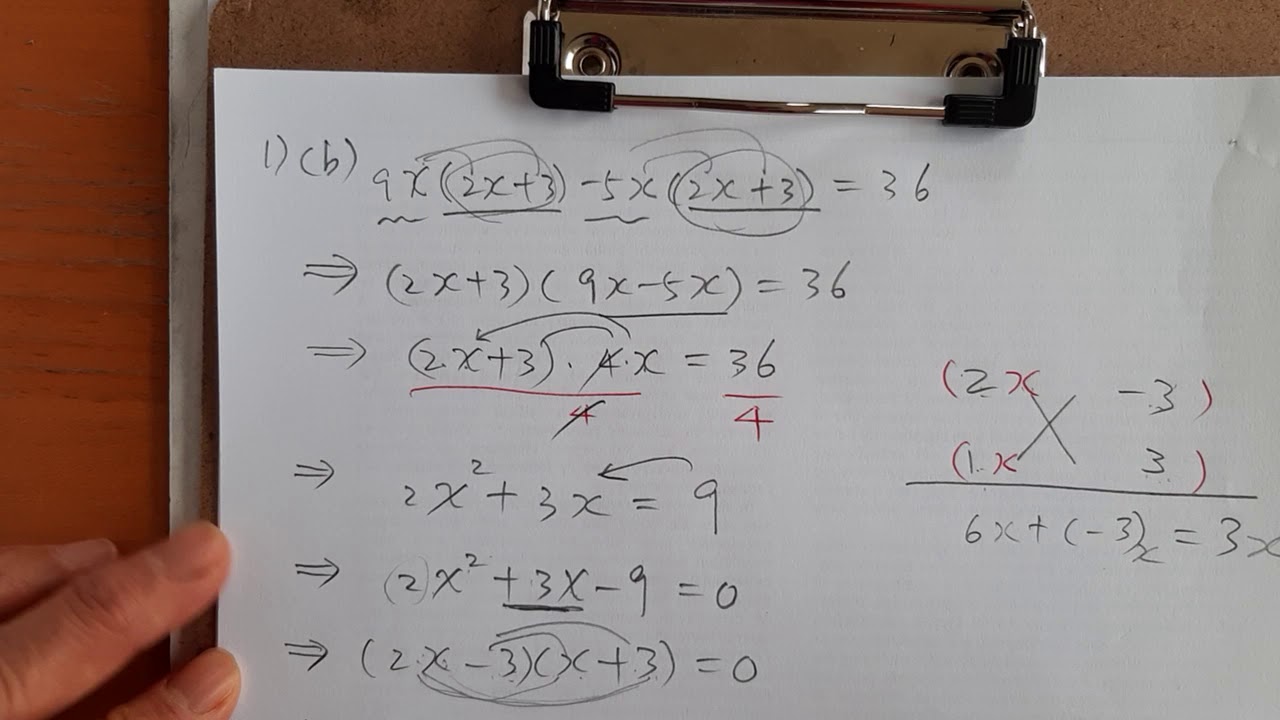 1) (b) 9x(2x+3) -5x(2x+3) = 36
⇒ (2x+3)(9x-5x) = 36
⇒ (2x+3)·4·x = 36
4 4
⇒ 2x² + 3x = 9
⇒ (2)x² +3x -9 = 0
⇒ (2x-3)(x+3) = 0
(2x -3)
(1x 3)
6x+(-3)x = 3x